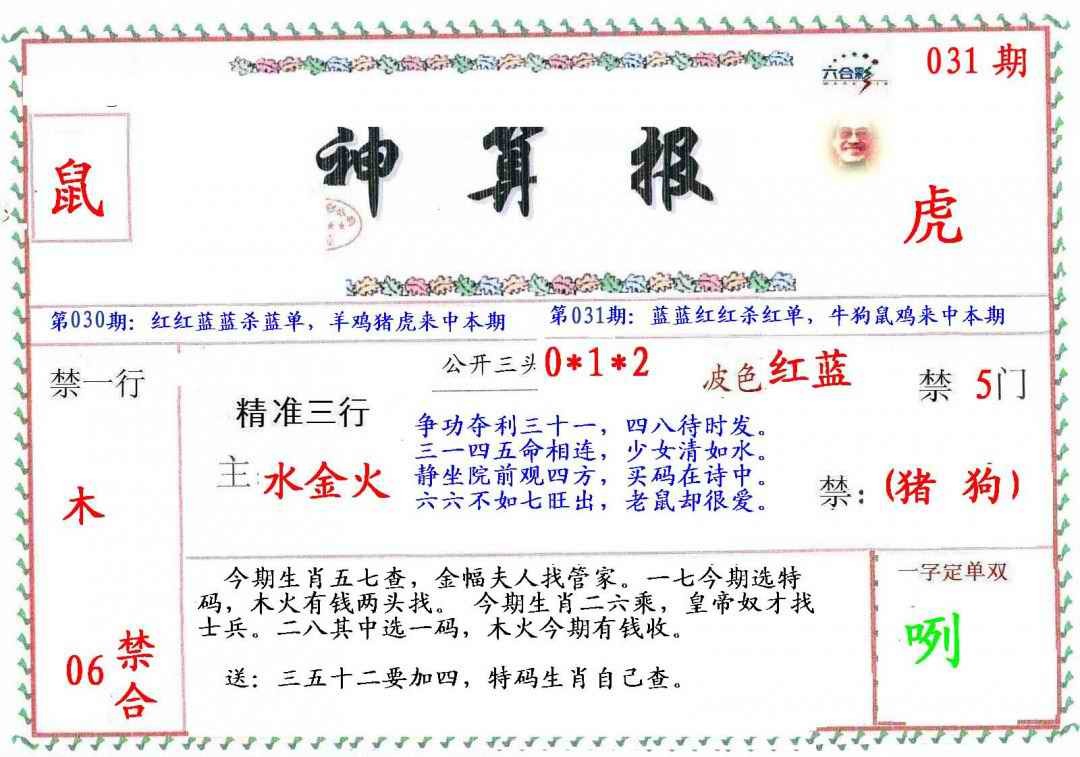 六合彩
031 期
鼠
神 算 报
虎
第030期：红红蓝蓝杀蓝单，羊鸡猪虎来中本期
第031期：蓝蓝红红杀红单，牛狗鼠鸡来中本期
禁一行
公开三头 0*1*2
波色 红蓝
禁 5门
精准三行
主: 水金火
争功夺利三十一，四八待时发。
三一四五命相连，少女清如水。
静坐院前观四方，买码在诗中。
六六不如七旺出，老鼠却很爱。
禁：(猪 狗)
木
今期生肖五七查，金幅夫人找管家。一七今期选特
码，木火有钱两头找。 今期生肖二六乘，皇帝奴才找
士兵。二八其中选一码，木火今期有钱收。
送：三五十二要加四，特码生肖自己查。
一字定单双
咧
06 禁合